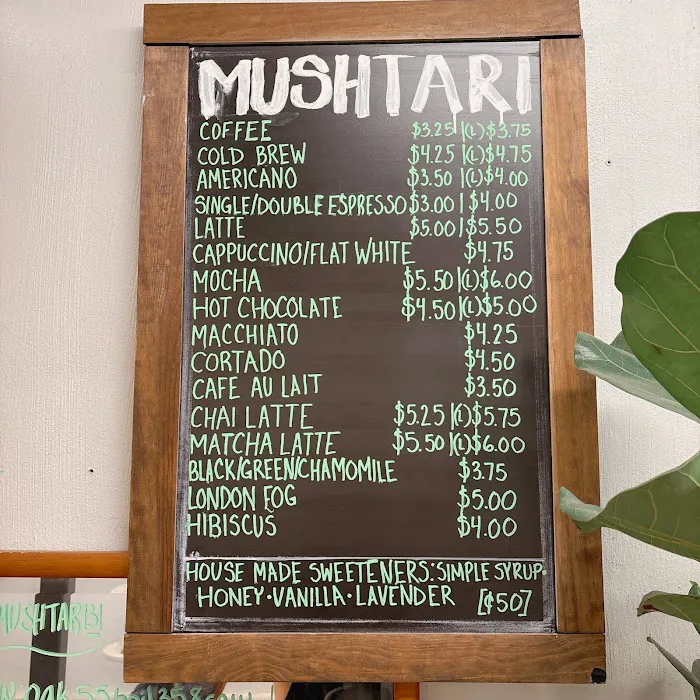 MUSHTARI
COFFEE $3.25 |(L) $3.75
COLD BREW $4.25 |(L) $4.75
AMERICANO $3.50 |(L) $4.00
SINGLE/DOUBLE ESPRESSO $3.00 | $4.00
LATTE $5.00 | $5.50
CAPPUCCINO/FLAT WHITE $4.75
MOCHA $5.50 |(L) $6.00
HOT CHOCOLATE $4.50 |(L) $5.00
MACCHIATO $4.25
CORTADO $4.50
CAFE AU LAIT $3.50
CHAI LATTE $5.25 |(L) $5.75
MATCHA LATTE $5.50 |(L) $6.00
BLACK/GREEN/CHAMOMILE $3.75
LONDON FOG $5.00
HIBISCUS $4.00
HOUSE MADE SWEETENERS: SIMPLE SYRUP·
HONEY·VANILLA·LAVENDER [¢50]